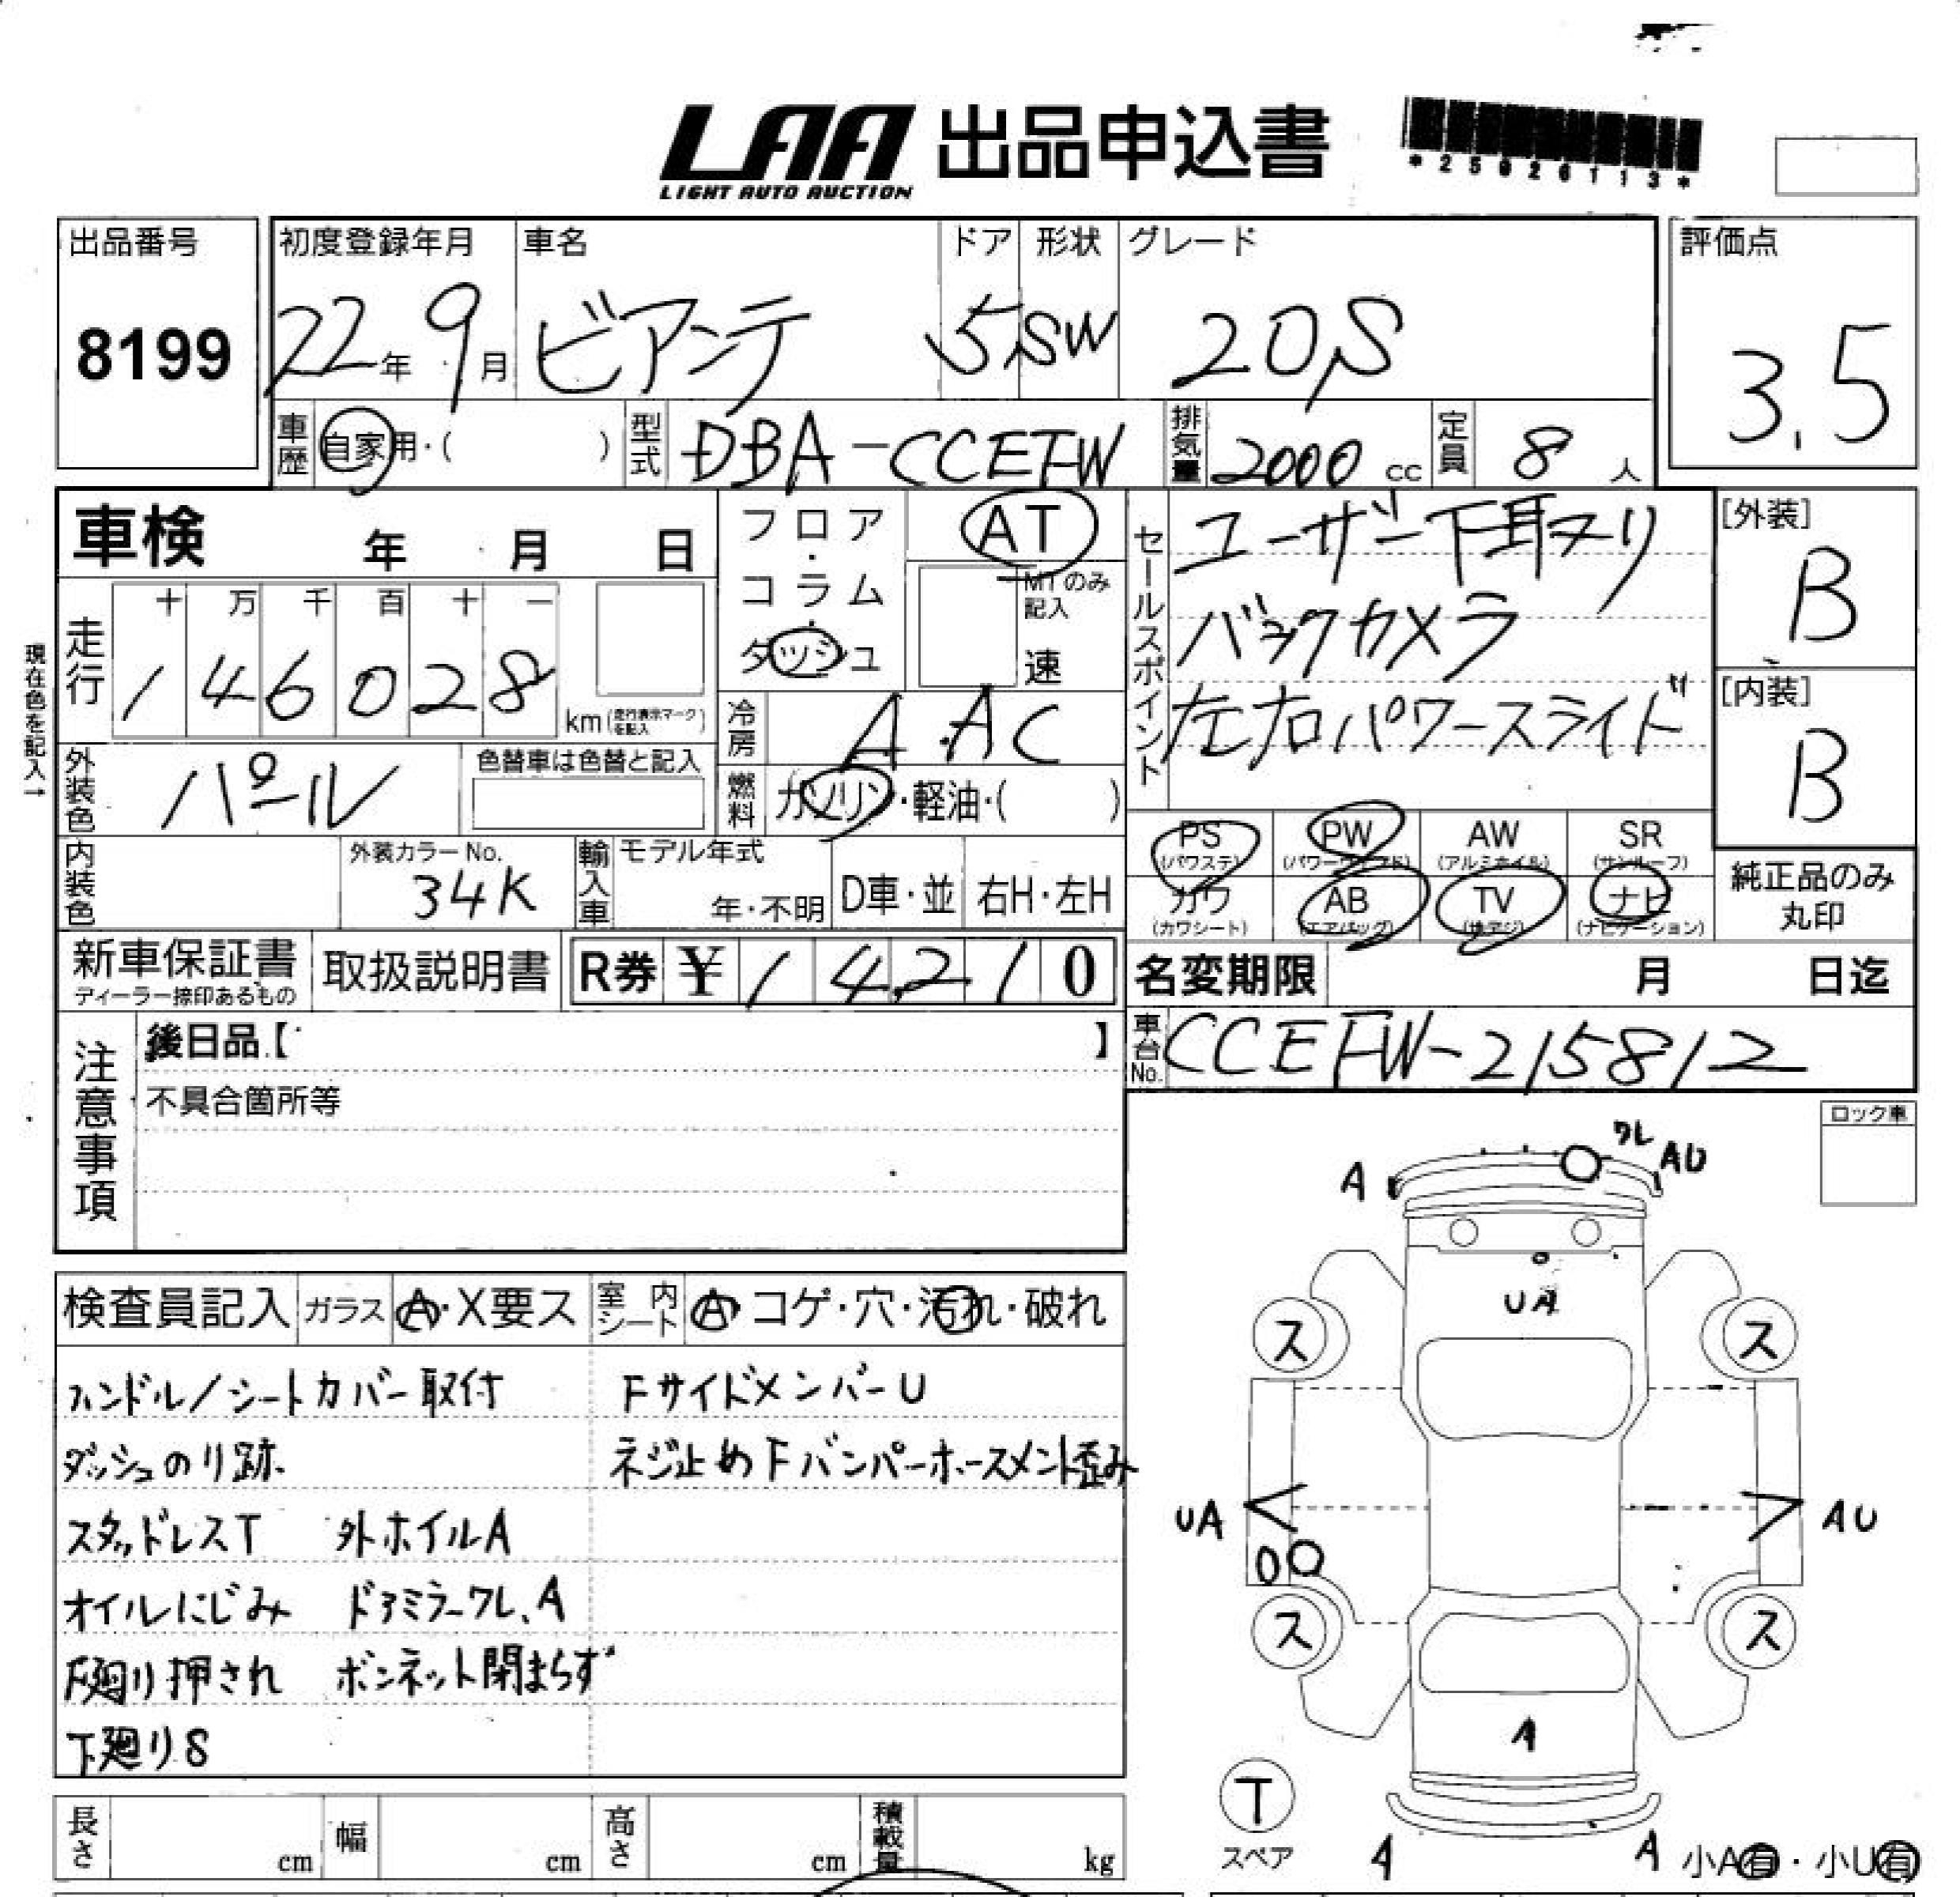 LAA 出品申込書
LIGHT AUTO AUCTION
*25926113*
出品番号
8199
初度登録年月
22年 9月
車名
ビアンテ
ドア
5
形状
SW
グレード
20S
評価点
3.5
車歴 自家用・( )
型式 DBA-CCEFW
排気量 2000 cc
定員 8 人
車検 年 月 日
フロア・コラム・ダッシュ
AT
MTのみ記入
速
セールスポイント
ユーザー下取リ
バックカメラ
左右パワースライド
[外装]
B
[内装]
B
現在色を記入→
走行
十 万 千 百 十 一
1 4 6 0 2 8 km (走行表示マークを記入)
冷房 A.AC
外装色 パール
色替車は色替と記入
燃料 ガソリン・軽油・( )
内装色
外装カラーNo.
34K
輸入車 モデル年式
年・不明
D車・並
右H・左H
PS (パワステ)
PW (パワーウィンド)
AW (アルミホイル)
SR (サンルーフ)
カワ (カワシート)
AB (エアバッグ)
TV (地デジ)
ナビ (ナビゲーション)
純正品のみ丸印
新車保証書
ディーラー捺印あるもの
取扱説明書
R券 ¥ 14,210
名変期限 月 日迄
車台No. CCEFW-215812
注意事項
後日品【 】
不具合箇所等
ロック車
ワレ
A
AU
UA
ス ス
UA
AU
ス ス
A
T
スペア
A
A
小A有・小U有
検査員記入 ガラス A・X要ス 室内シート A・コゲ・穴・汚れ・破れ
ハンドル/シートカバー取付 FサイドメンバーU
ダッシュのり跡 ネジ止め Fバンパーホースメント歪み
スタッドレスT 外ホイルA
オイルにじみ ドアミラーワレ、A
下廻り押され ボンネット閉まらず
下廻りS
長さ cm
幅 cm
高さ cm
積載量 kg